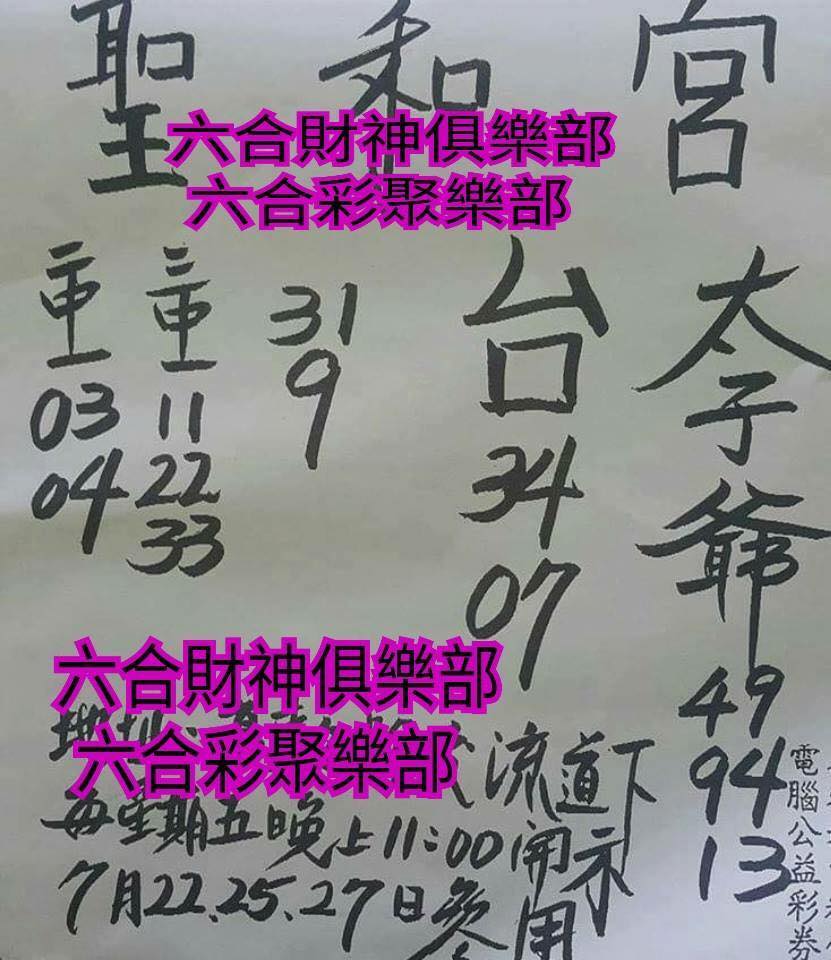 聖和宮
六合財神俱樂部
六合彩聚樂部
太子爺
49
94
13
台
34
07
31
9
三中一
11
22
33
二中一
03
04
六合財神俱樂部
六合彩聚樂部
地址
流道下
每星期五晚上11:00開示
7月22.25.27日參用
電腦公益彩券